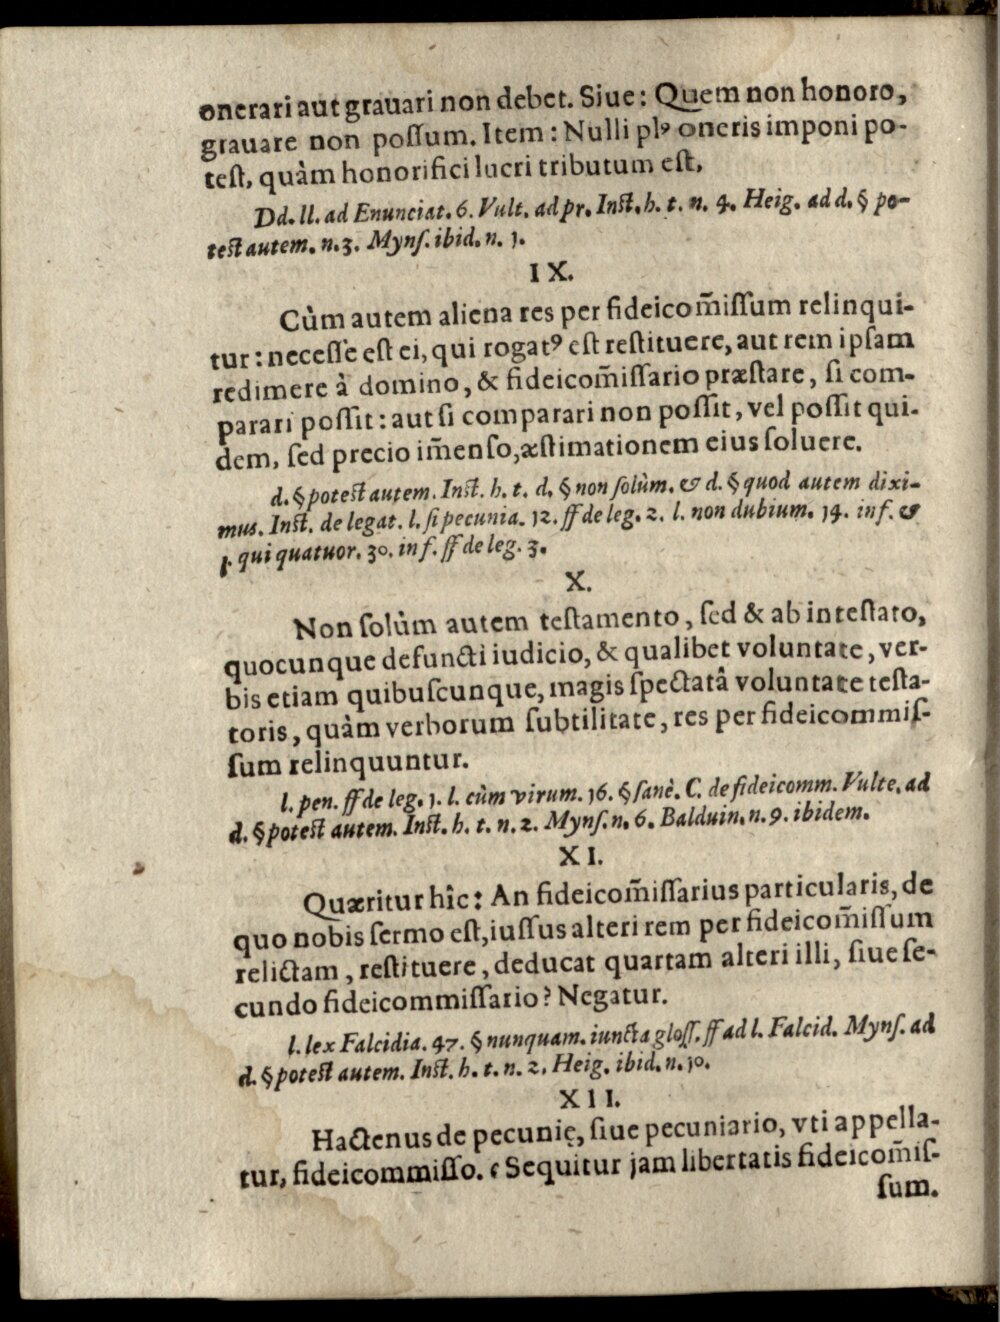 onerari aut grauari non debet. Siue: Quem non honoro,
grauare non poſſum. Item: Nulli plꝰ oneris imponi po-
teſt, quàm honorifici lucri tributum eſt.
Dd. ll. ad Enunciat. 6. Vult. ad pr. Inſt. h. t. n. 4. Heig. ad d. § po-
teſt autem. n. 3. Mynſ. ibid. n. 1.
IX.
Cùm autem aliena res per fideicom̃iſſum relinqui-
tur: neceſſe eſt ei, qui rogatꝰ eſt reſtituere, aut rem ipſam
redimere à domino, & fideicom̃iſſario præſtare, ſi com-
parari poſſit: aut ſi comparari non poſſit, vel poſſit qui-
dem, ſed precio im̃enſo, æſtimationem eius ſoluere.
d. § poteſt autem. Inſt. h. t. d. § non ſolùm. & d. § quod autem dixi-
mus. Inſt. de legat. l. ſi pecunia. 12. ff de leg. 2. l. non dubium. 14. in f. &
l. qui quatuor. 30. in f. ff de leg. 3.
X.
Non ſolùm autem teſtamento, ſed & ab inteſtato,
quocunque defuncti iudicio, & qualibet voluntate, ver-
bis etiam quibuſcunque, magis ſpectatâ voluntate teſta-
toris, quàm verborum ſubtilitate, res per fideicommiſ-
ſum relinquuntur.
l. pen. ff de leg. 1. l. cùm virum. 16. § ſanè. C. de fideicomm. Vulte. ad
d. § poteſt autem. Inſt. h. t. n. 2. Mynſ. n. 6. Balduin. n. 9. ibidem.
XI.
Quæritur hîc: An fideicom̃iſſarius particularis, de
quo nobis ſermo eſt, iuſſus alteri rem per fideicom̃iſſum
relictam, reſtituere, deducat quartam alteri illi, ſiue ſe-
cundo fideicommiſſario? Negatur.
l. lex Falcidia. 47. § nunquam. iuncta gloſſ. ff ad l. Falcid. Mynſ. ad
d. § poteſt autem. Inſt. h. t. n. 2. Heig. ibid. n. 10.
XII.
Hactenus de pecunię, ſiue pecuniario, vti appella-
tur, fideicommiſſo. Sequitur jam libertatis fideicom̃iſ-
ſum.